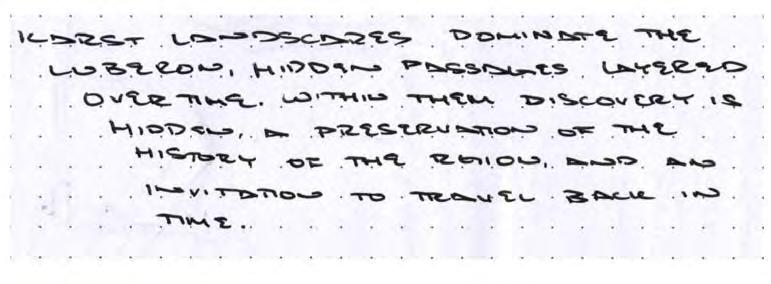 KARST LANDSCAPES DOMINATE THE
LUBERON, HIDDEN PASSAGES LAYERED
OVER TIME. WITHIN THEM DISCOVERY IS
HIDDEN, A PRESERVATION OF THE
HISTORY OF THE REGION, AND AN
INVITATION TO TRAVEL BACK IN
TIME.